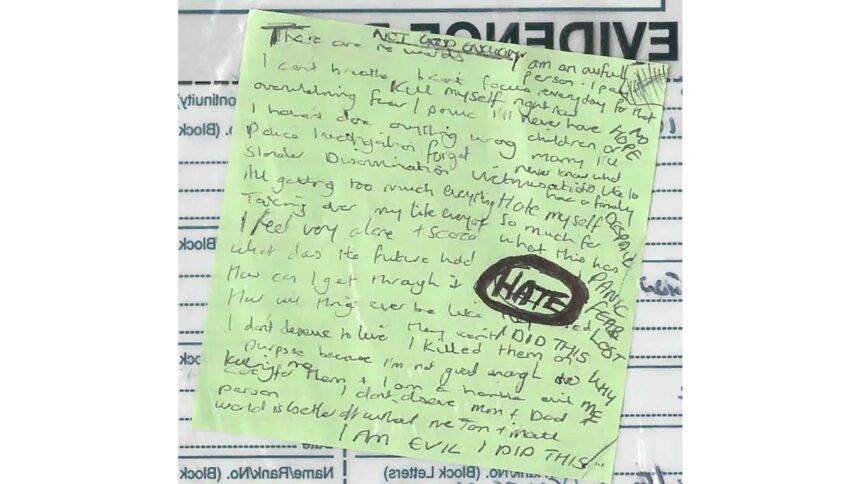 EVIDENCE
NOT GOOD ENOUGH
There are no words
I am an awful person. I pay everyday for that
I can't breathe I can't focus
Kill myself right now
overwhelming fear / panic
I'll never have children or
I haven't done anything wrong
marry I'll never know what
Police investigation forget
its like to have a family
Slander Discrimination victimisation
NO HOPE
All getting too much everything
Hate myself so much for what this has
Taking over my life everyday
DESPAIR
I feel very alone + scared
PANIC
What does the future hold
FEAR
How can I get through it
HATE
LOST
How will things ever be like
they used
they won't
I DID THIS
I don't deserve to live
I killed them on
WHY ME
purpose because I'm not good enough to
care for them + I am a horrible evil
person
I don't deserve Mum + Dad +
world is better off without me
I AM EVIL I DID THIS
Continuity)
No. (Block)
Block
Name/Rank/No. (Block)
No. (Block Letters)